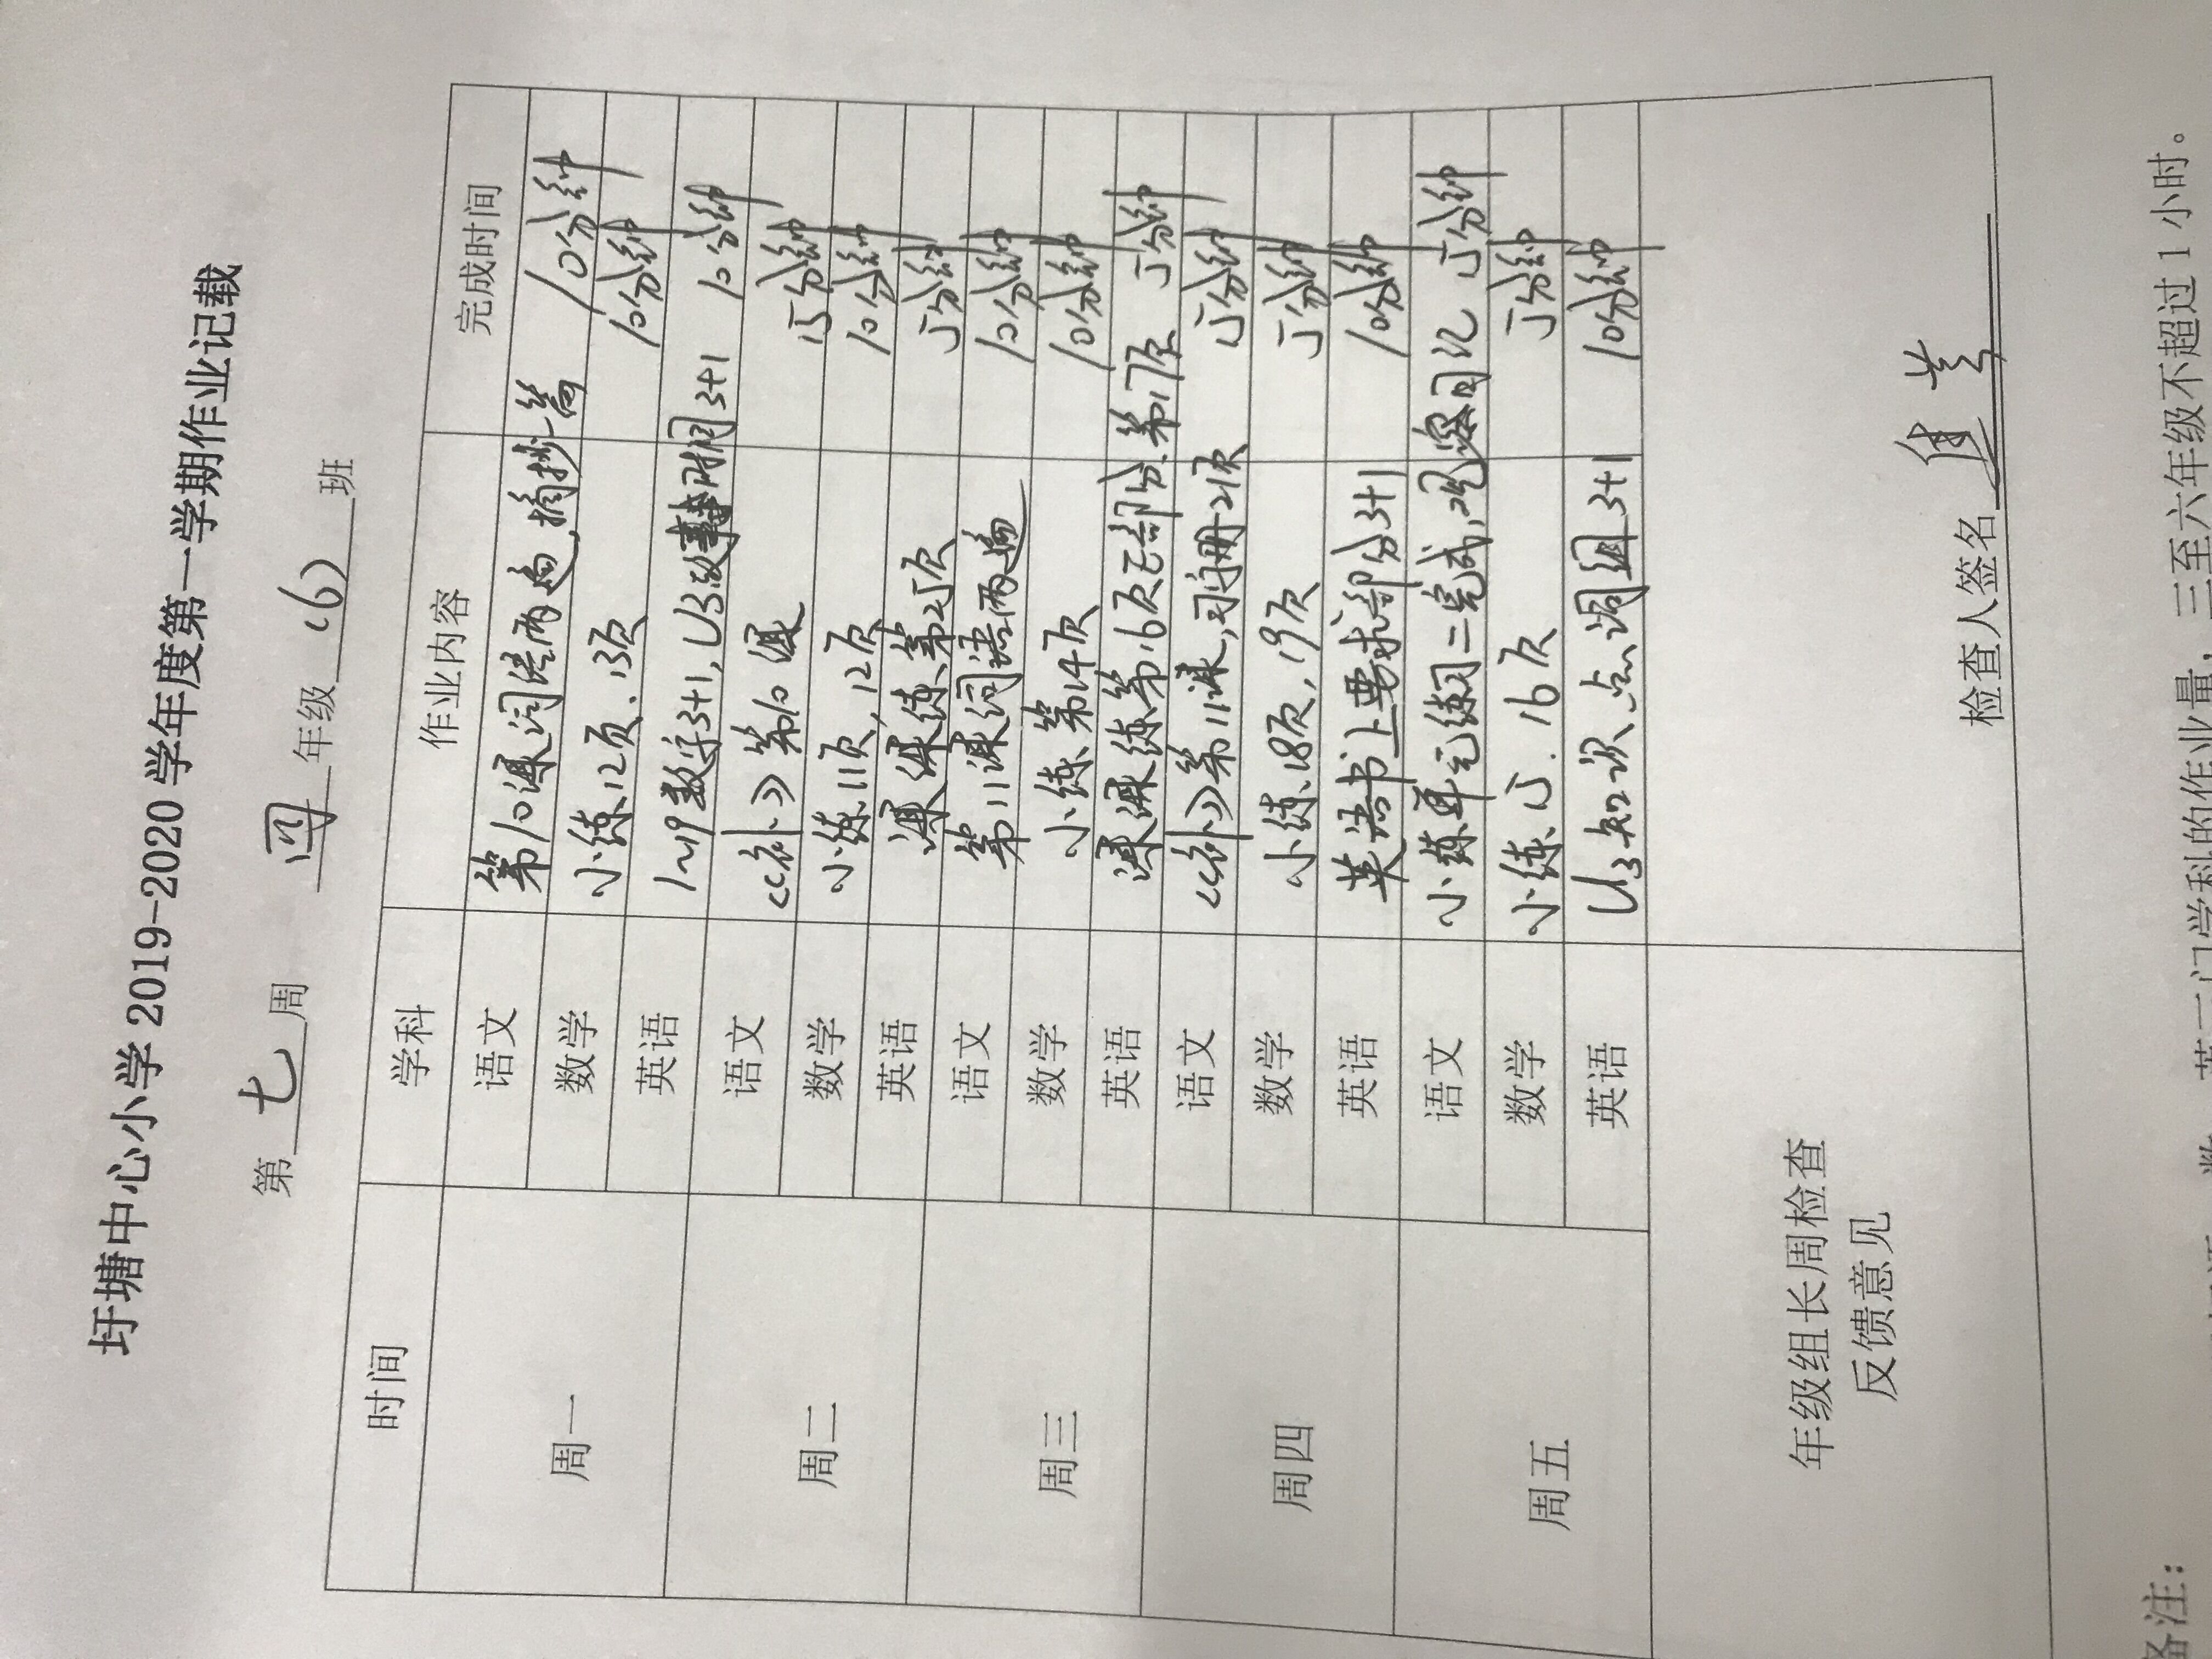 圩塘中心小学 2019-2020 学年度第一学期作业记载
第 七 周 四 年级 (6) 班
时间 学科 作业内容 完成时间
周一 语文 第10课词语两遍,摘抄一篇 10分钟
数学 小练12页.13页 10分钟
英语 1~19数字3+1, U3故事时间3+1 10分钟
周二 语文 《补》第10课 15分钟
数学 小练11页, 12页 10分钟
英语 课课练第25页 5分钟
周三 语文 第11课词语两遍 10分钟
数学 小练第14页 10分钟
英语 课课练第16页E部分.第17页 5分钟
周四 语文 《补》第11课,习字册21页 5分钟
数学 小练18页, 19页 5分钟
英语 英语书上要求部分3+1 10分钟
周五 语文 小练单元练习二完成, 5分钟
数学 小练15. 16页 5分钟
英语 U3知识点词组3+1 10分钟
年级组长周检查
反馈意见
检查人签名
备注:
英三门学科的作业量,三至六年级不超过 1 小时。